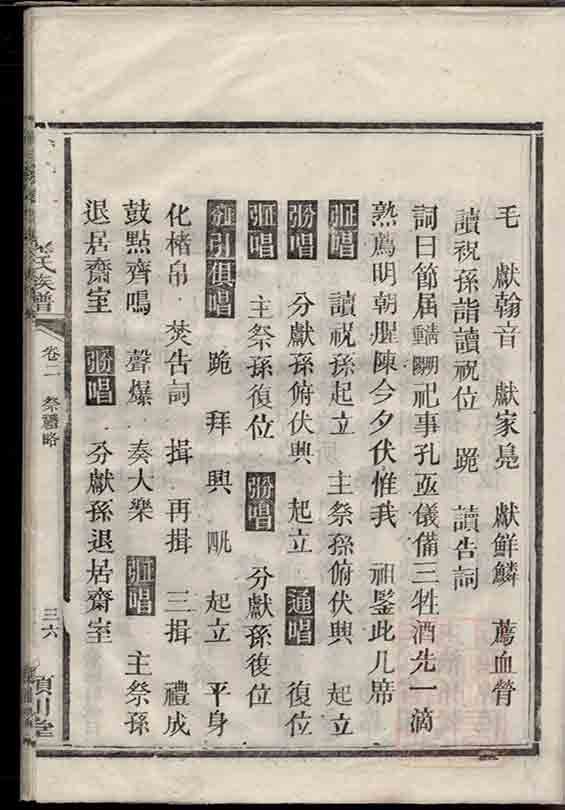 毛　獻翰音　獻家鳧　獻鮮鱗　薦血膋
讀祝孫詣讀祝位　跪　讀告詞
詞曰節屆祀事孔亟儀備三牲酒先一滴
熟薦明朝腥陳今夕伏惟我　祖鑒此几席
引正唱　讀祝孫起立　主祭孫俯伏興　起立
引分唱　分獻孫俯伏興　起立　通唱　復位
引正唱　主祭孫復位　引分唱　分獻孫復位
引俱唱　跪　拜　興　起立　平身
化楮帛　焚告詞　揖　再揖　三揖　禮成
鼓點齊鳴　聲爆　奏大樂　引正唱　主祭孫
退居齋室　引分唱　分獻孫退居齋室
氏族譜　卷二　祭禮略　三六　川堂